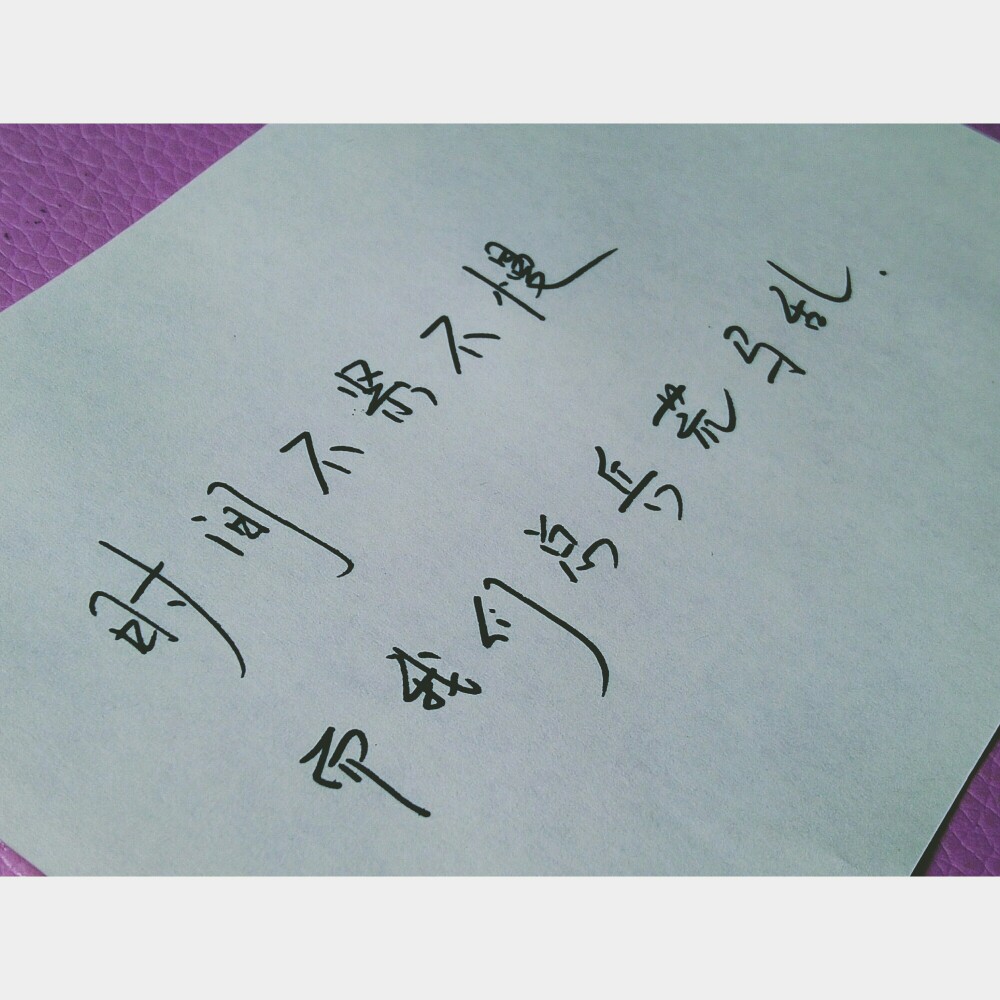 时间不紧不慢
而我们总兵荒马乱.